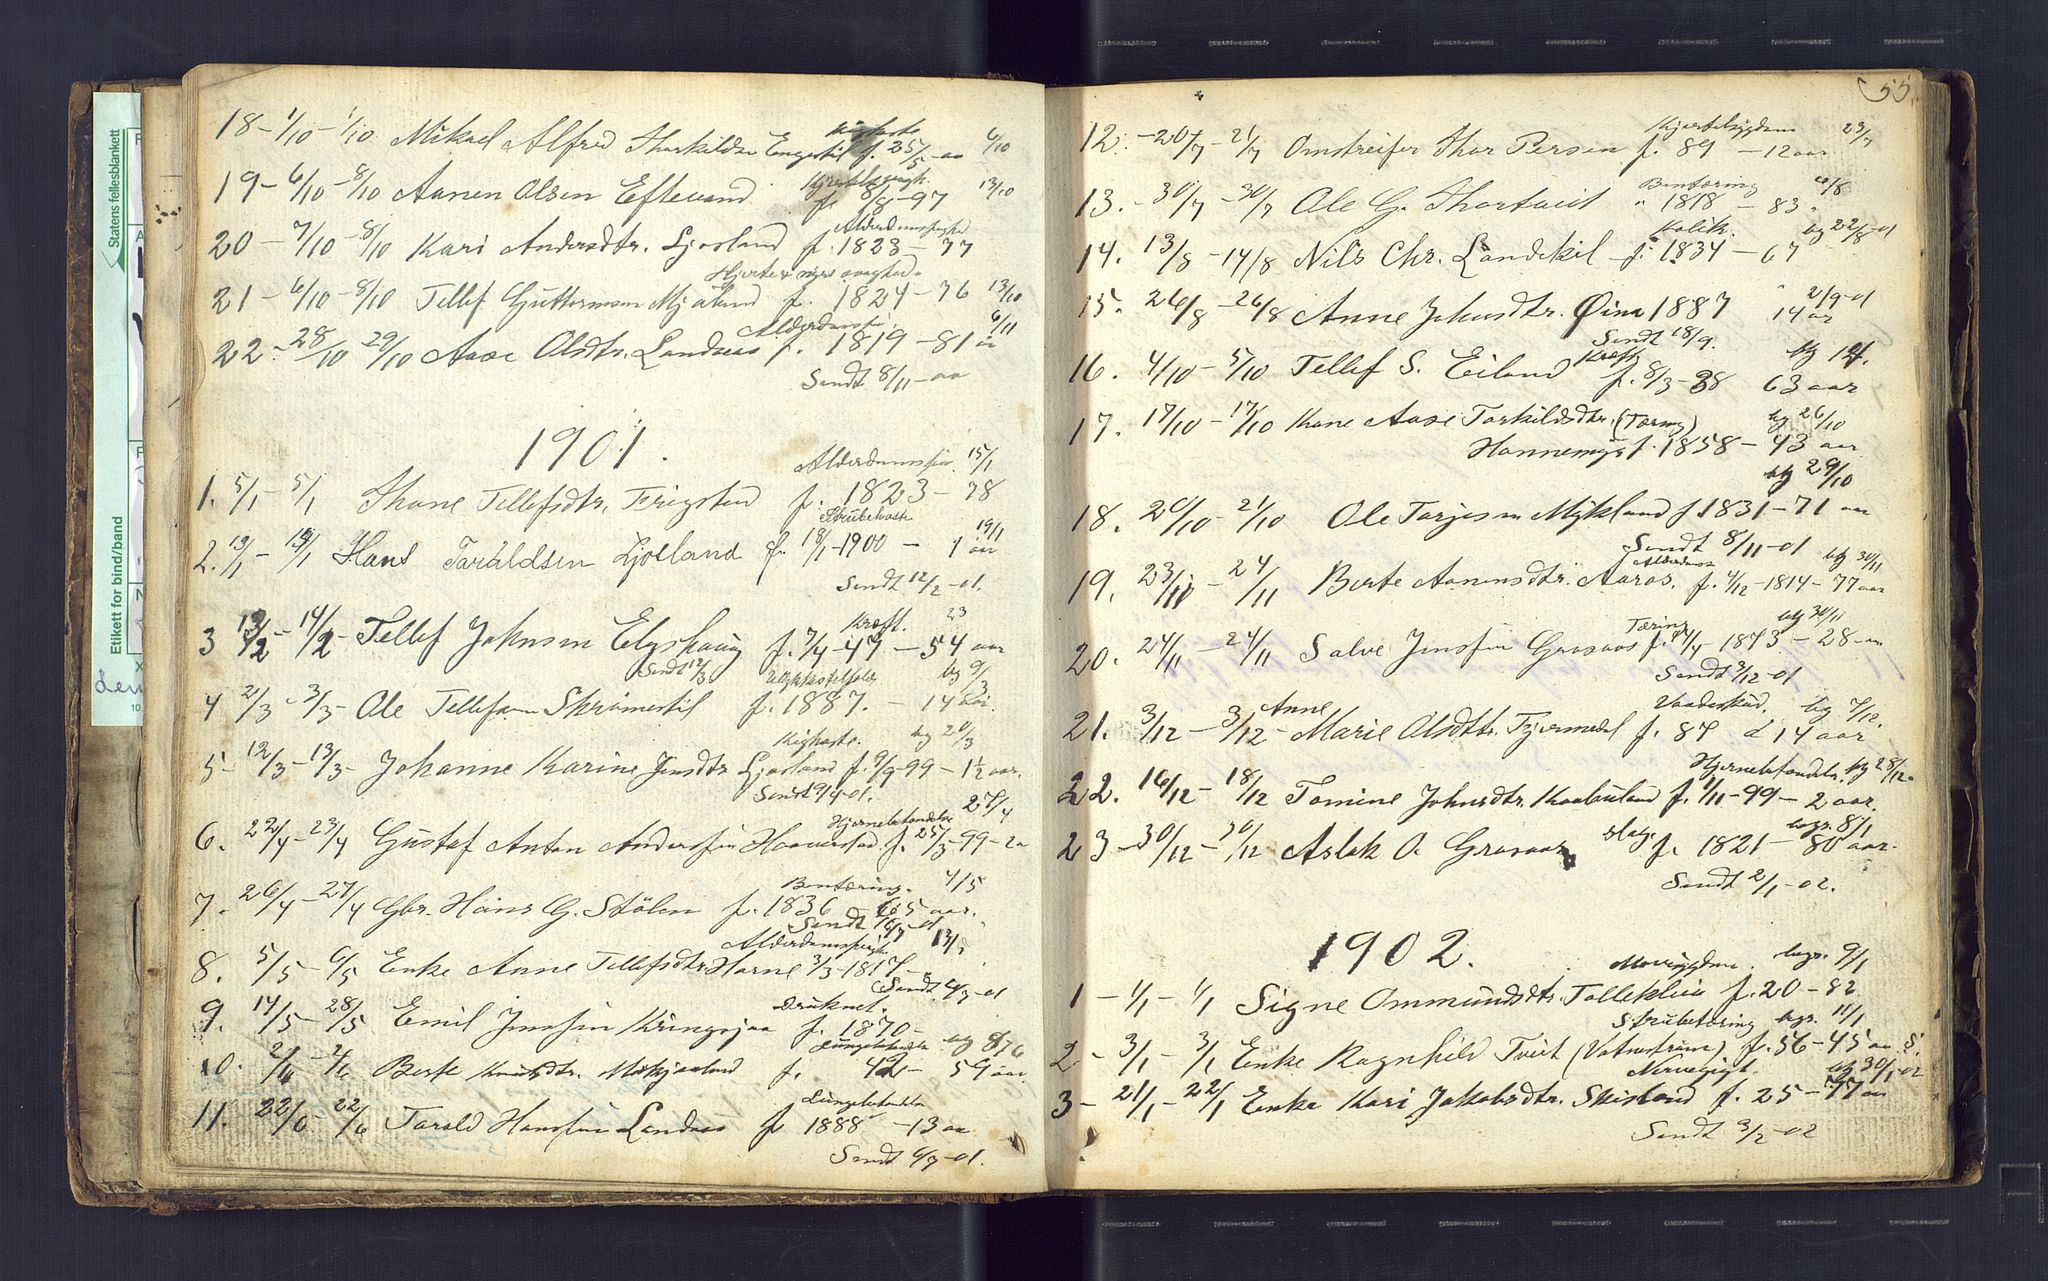 Kighoste
18 – 1/10 – 1/10 Mikael Alfred Thorkildsen Engestil f. 25/5 – aa 6/10
19 – 6/10 – 8/10 Aanen Olsen Eftevand f. 8/8 – 97 13/10
Alderdomssvaghed
20 – 7/10 – 8/10 Kari Andersdtr. Ljosland f. 1823 – 77
21 – 6/10 – 8/10 Tellef Guttormsen Mjaalund f. 1824 – 76 13/10
Alderdomssv. 6/11
22 – 28/10 29/10 Aase Olsdtr. Landaas f. 1819 – 81 aar
Sendt 8/11 – aa
1901.
Alderdomssv. 15/1
1. 5/1 – 5/1 Thone Tellefsdtr. Trigstad f. 1823 – 78
Strubehoste 19/1
2. 12/1 – 12/1 Hans Taraldsen Ljosland f. 18/1 – 1900 – 1 aar
Sendt 12/2 – 01.
Kræft. 23
3 13/2 – 14/2 – Tellef Johnsen Elgshaug f. 7/4 – 47 – 54 aar
Sendt 12/3 Ulykkestilfælde bg 9/3
4 2/3 – 3/3 – Ole Tellefsen Skrømestil f. 1887. – 14 aar
Kighoste. bg 20/3
5 – 12/3 – 13/3 – Johanne Karine Jensdtr Ljosland f. 9/9 – 99 – 1½ aar.
Sendt 9/4 – 01.
Hjernebetændelse 27/4
6. 22/4 – 23/4 Gustaf Anton Anderssen Haaverstad f. 25/3 – 99 – 2 a
Bentæring. 4/5
7. 26/4 – 27/4 Gbr. Hans G. Stølen f. 1836 65 aar.
Sendt – 01
Alderdomssvagh. 13/5
8. 5/5 – 6/5 Enke Anne Tellefsdtr Horne 3/3 – 1817 –
Sendt 4/7 – 01
Druknet.
9. 14/5 – 28/5 Emil Jenssen Kringsjaa f. 1870 –
Lungebetændelse bg 8/6
10. 2/6 – 2/6 Berte Knudsdtr. f. 42 – 59 aar
Lungebetændelse
11. 22/6 – 22/6 Tarald Hanssen Landaas f. 1888 – 13 aar
Sendt 6/7 – 01.
55.
Hjertesygdom 23/7
12. – 20/7 – 21/7 Omstreifer Thor Persen f. 89 – 12 aar
Bentæring 4/8
13. – 30/7 – 30/7 Ole G. Thortveit " 1818 – 83 "
Kolik. bg 22/8 – 01
14. 13/8 – 14/8 Nils Chr. Landekil f. 1834 – 67
2/9 – 01
15. 26/8 – 26/8 Anne Johnsdtr. Øina 1887 14 aar
Sendt 18/9.
Kræft bg 12/.
16. 4/10 – 5/10 Tellef S. Eiland f. 8/3 – 38 63 aar
bg 26/10
17. 17/10 – 17/10 Kone Aase Torkildsdtr. (Tæring)
Honnemyr f. 1858 – 43 aar
bg 29/10
18. 20/10 – 21/10 Ole Torjesen Mykland f. 1831 – 71 aar
Sendt 8/11 – 01 bg 30/11
19. 23/11 – 24/11 Berte Aanensdtr. Aaros. f. 4/12 – 1814 – 77 aar
Tæring bg 30/11
20. 24/11 – 24/11 Salve Jenssen Grosaas f. 14/4 – 1873 – 28 aar
Sendt 3/12 – 01
Vaadeskud. bg 7/12.
Anne
21. 3/12 – 3/12 – Marie Olsdtr. Tjermedal f. 87 d 14 aar
Hjernebetændelse. bg 28/12
22. 16/12 – 18/12 Tomine Johnsdtr. Kaabuland f. 1/11 – 99 – 2 aar.
Slag. begr. 8/1
23 – 30/12 – 30/12 Aslak O. Grosaas f. 1821 – 80 aar.
Sendt 2/1 – 02.
1902.
Mavesygdom. begr. 9/1
1 – 1/1 – 1/1 Signe Ommundsdtr. Tolleklein f. 20 – 82
Strubetæring begr. 11/1
2 – 3/1 – 3/1 Enke Ragnhild Tveit (Vatnestrøm) f. 56 – 45 aar
Nervegigt. bg 30/1 – 02
3 – 21/1 – 22/1 Enke Kari Jakobsdtr. Skisland f. 25 – 77 aar
Sendt 3/2 – 02
Statens fellesblankett
Etikett for bind/band